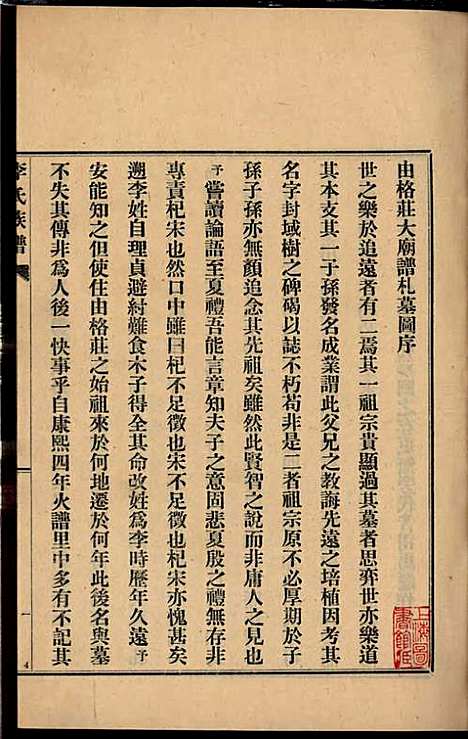 由格莊大廟譜札墓圖序
世之樂於追遠者有二焉其一祖宗貴顯過其墓者思弈世亦樂道
其本支其一子孫發名成業謂此父兄之教誨先遠之培植因考其
名字封域樹之碑碣以誌不朽苟非是二者祖宗原不必厚期於子
孫子孫亦無顏追念其先祖矣雖然此賢智之說而非庸人之例
予嘗讀論語至夏禮吾能言章知夫子之意固悲夏殷之禮無存非
專責杞宋也然口中雖曰杞不足徵也宋不足徵也杞宋亦愧甚矣
遡李姓自理貞避紂難食木子得全其命改姓為李時歷年久遠予
安能知之但使住由格莊之始祖來於何地遷於何年此後名與墓
不失其傳非為人後一快事乎自康熙四年火譜里中多有不記其
李氏族譜
一
4
上海圖書館藏